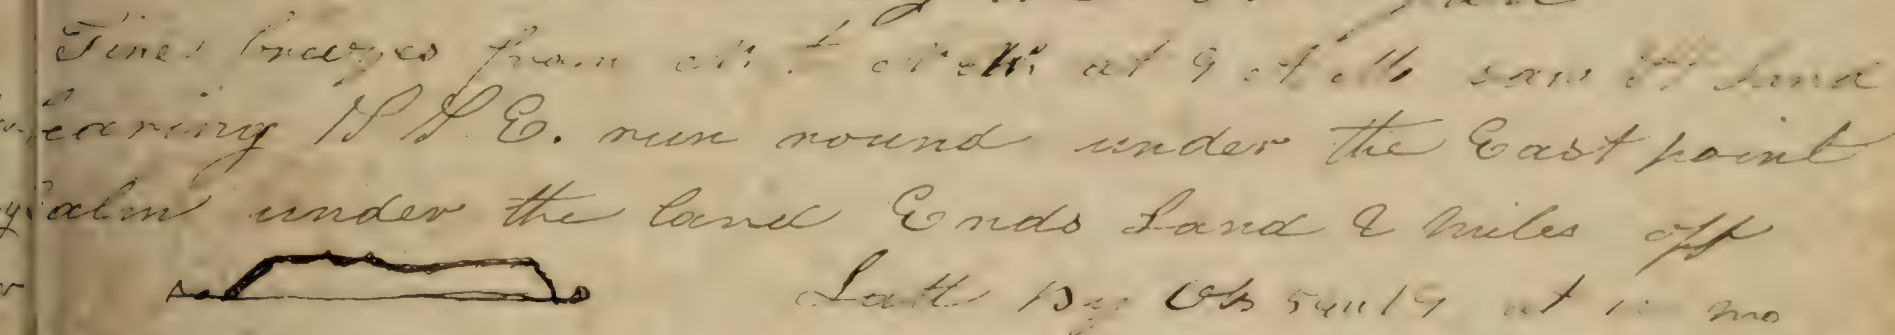 Fine breezes from at 9 saw land
bearing N N E. run round under the East point
Calm under the land Ends Land 2 miles off
Latt By Obs at